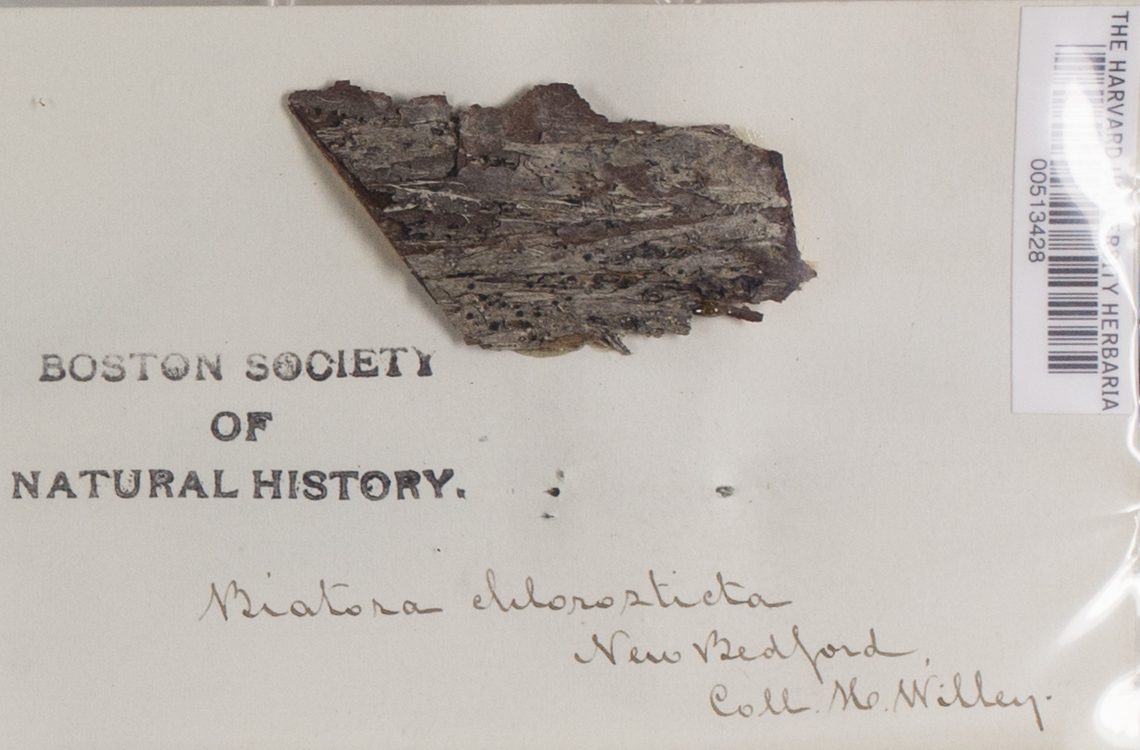 BOSTON SOCIETY
OF
NATURAL HISTORY.
Biatora chlorosticta
New Bedford,
Coll. H. Willey.
THE HARVARD UNIVERSITY HERBARIA
00513428